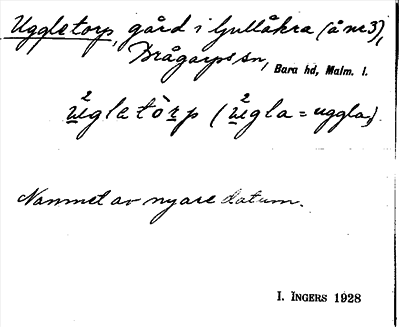 Uggletorp, gård i Gullåkra (å nr 3),
Brågarps sn, Bara hd, Malm. l.
ugletòrp (ugla = uggla).
Namnet av nyare datum.
I. INGERS 1928